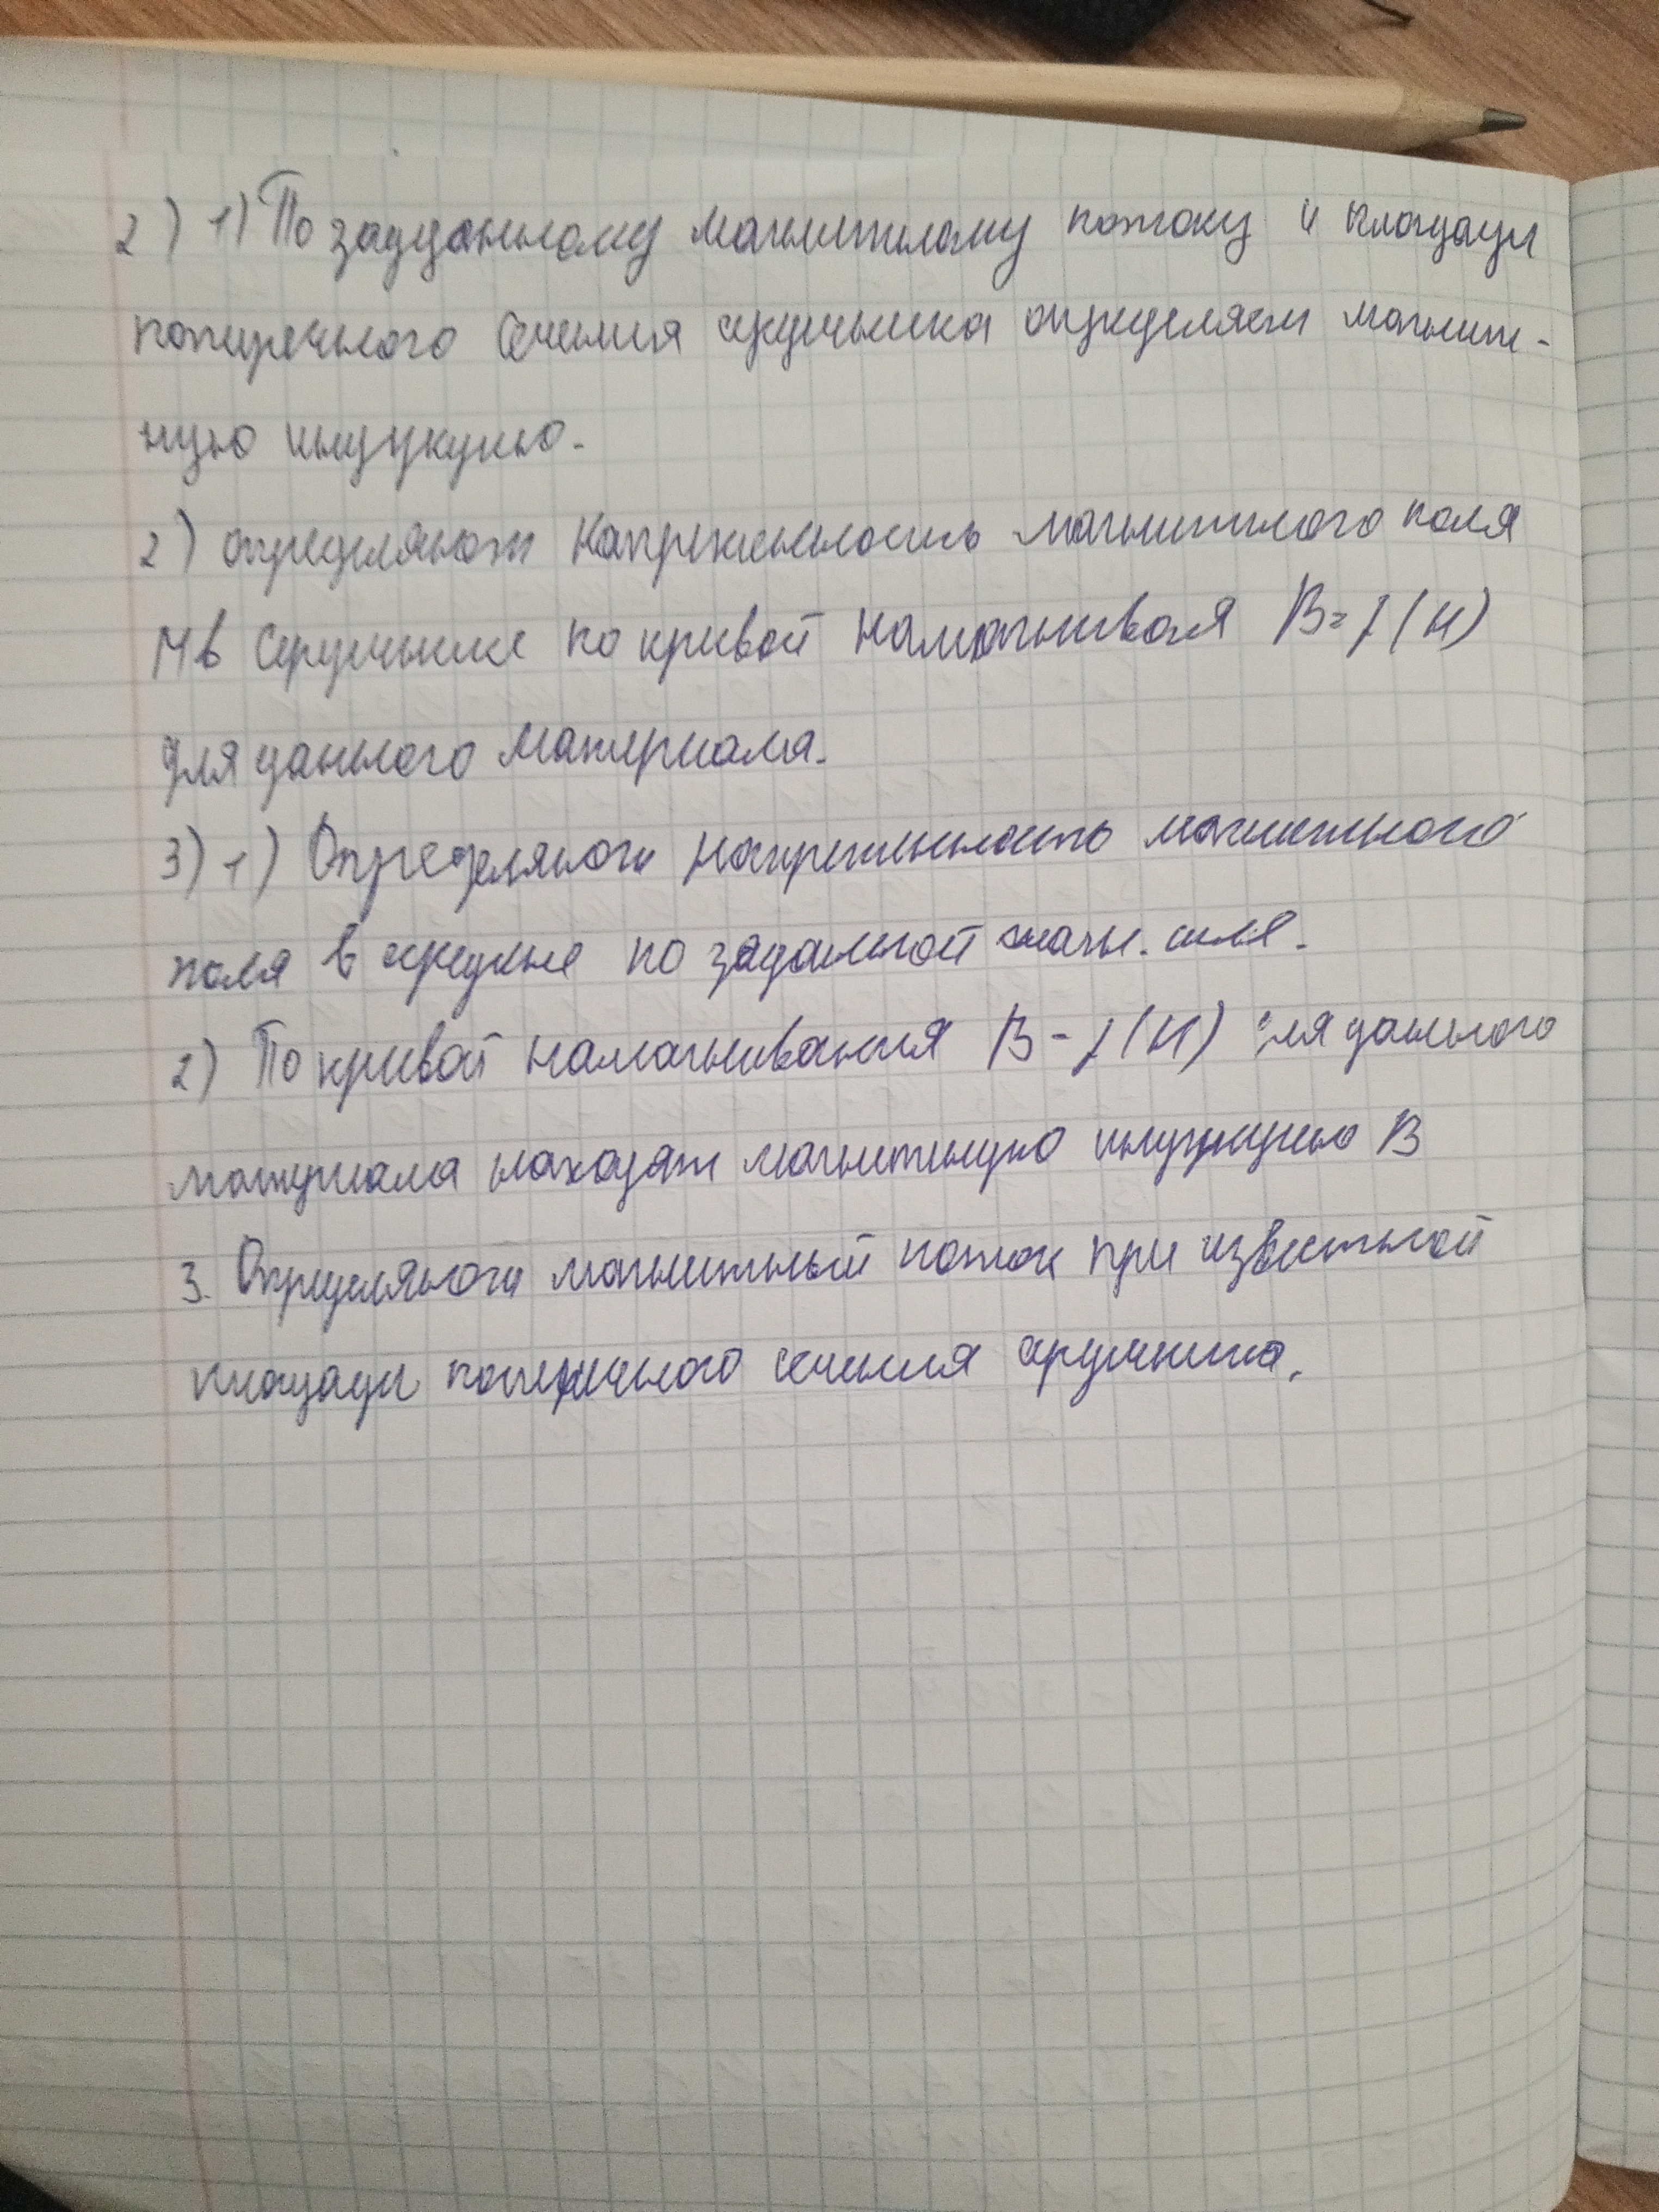 2) 1) По зададанному магнитному потоку и площади
поперечного сечения сердечника определяем магнит-
ную индукцию.
2) определяют напреженность магнитного поля
H в сердечнике по кривой намагниваия B=f(H)
для данного материала.
3) 1) Определяют напреженность магнитного
поля в по заданной магн. силе.
2) По кривой намагнивания B-f(H) для данного
материала находят магнитную индукцию B
3. Определяют магнитный поток при известной
площади поперечного сечения сердечника.